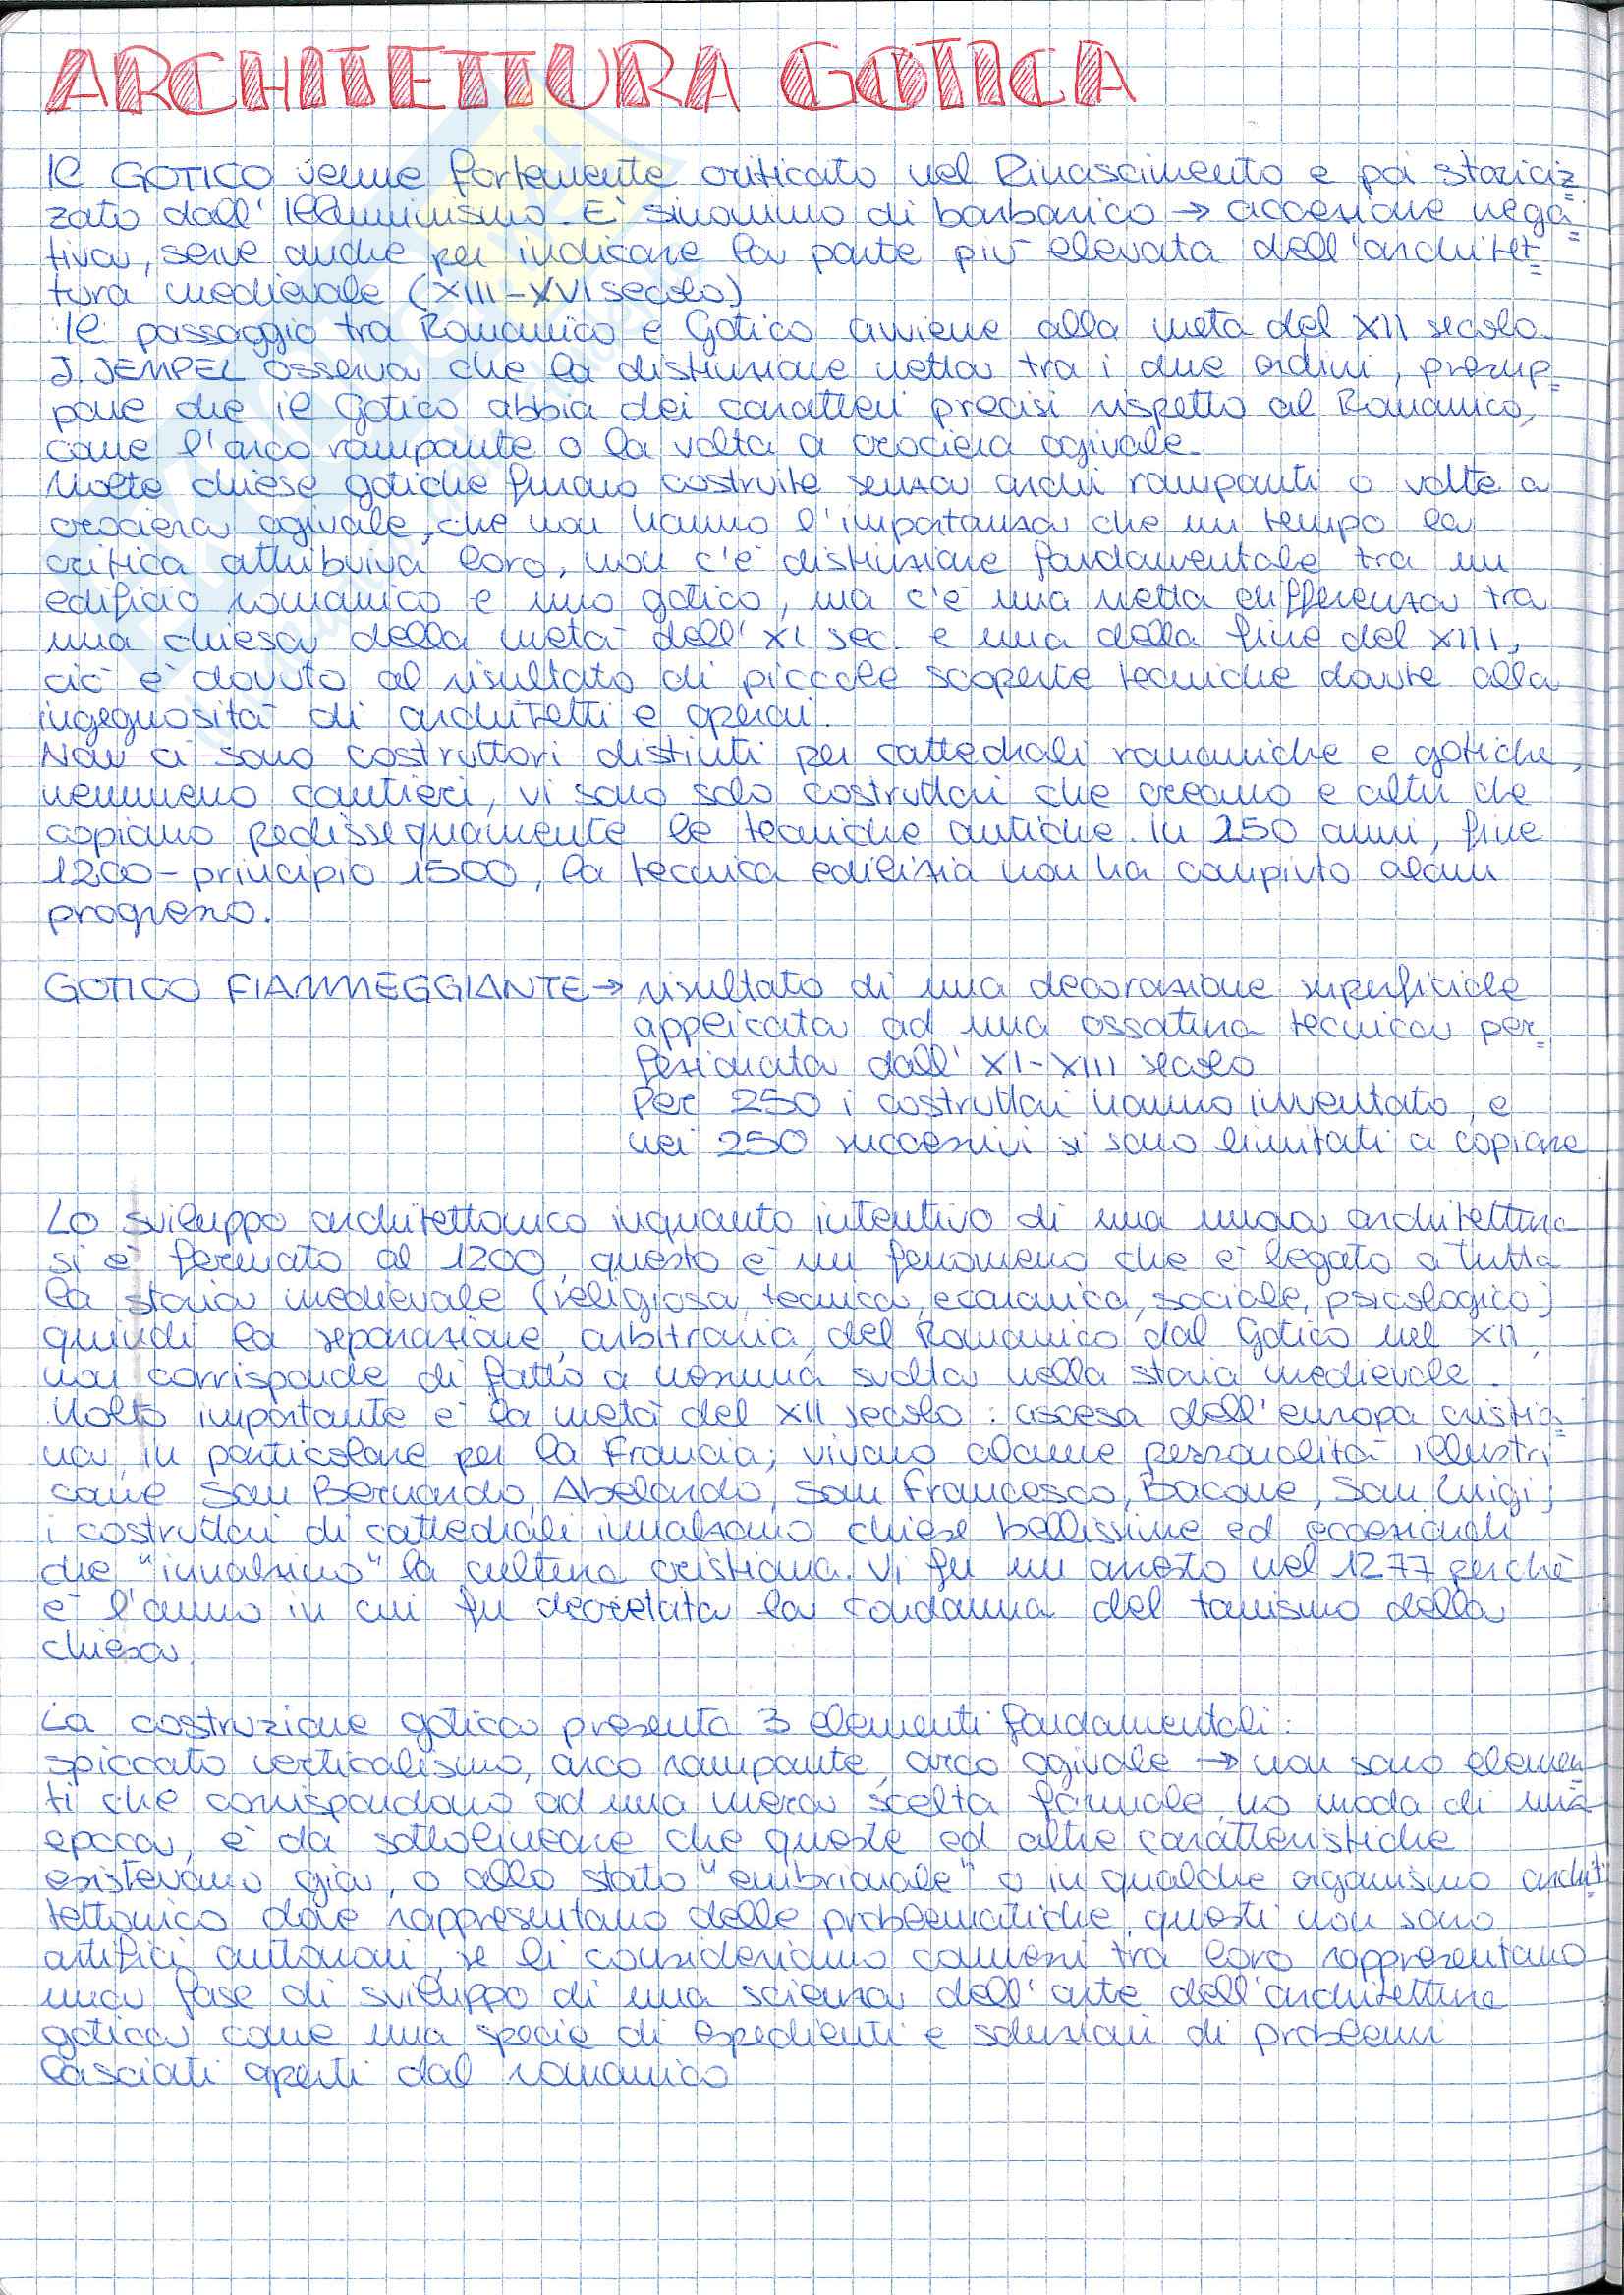 ARCHITETTURA GOTICA
Il GOTICO venne fortemente criticato nel Rinascimento e poi storiciz=
zato dall'Illuminismo. E' sinonimo di barbarico → accezione nega=
tiva, serve anche per indicare la parte più elevata dell'architet=
tura medievale (XIII-XVI secolo)
Il passaggio tra Romanico e Gotico avviene alla metà del XII secolo.
J. JEMPEL osserva che la distinzione netta tra i due ordini, presup=
pone che il Gotico abbia dei caratteri precisi rispetto al Romanico,
come l'arco rampante o la volta a crociera ogivale.
Molte chiese gotiche furono costruite senza archi rampanti o volte a
crociera ogivale, che non hanno l'importanza che un tempo la
critica attribuiva loro, non c'è distinzione fondamentale tra un
edificio romanico e uno gotico, ma c'è una netta differenza tra
una chiesa della metà dell'XI sec. e una della fine del XIII,
ciò è dovuto al risultato di piccole scoperte tecniche dovute alla
ingegnosità di architetti e operai.
Non ci sono costruttori distinti per cattedrali romaniche e gotiche,
nemmeno cantieri, vi sono solo costruttori che creano e altri che
copiano pedissequamente le tecniche antiche. In 250 anni, fine
1200-principio 1500, la tecnica edilizia non ha compiuto alcun
progresso.
GOTICO FIAMMEGGIANTE → risultato di una decorazione superficiale
applicata ad una ossatura tecnica per=
fezionata dall'XI-XIII secolo
Per 250 i costruttori hanno inventato, e
nei 250 successivi si sono limitati a copiare
Lo sviluppo architettonico inquanto intentivo di una nuova architettura
si è fermato al 1200, questo è un fenomeno che è legato a tutta
la storia medievale (religiosa, tecnica, economica, sociale, psicologico)
quindi la separazione, arbitraria, del Romanico dal Gotico nel XII,
non corrisponde di fatto a nessuna svolta nella storia medievale.
Molto importante è la metà del XII secolo: ascesa dell'europa cristia=
na, in particolare per la Francia; vivono alcune personalità illustri
come San Bernardo, Abelardo, San Francesco, Bacone, San Luigi;
i costruttori di cattedrali innalzano chiese bellissime ed eccezionali
che "innalzino" la cultura cristiana. Vi fu un arresto nel 1277 perchè
è l'anno in cui fu decretata la condanna del tomismo della
chiesa.
La costruzione gotica presenta 3 elementi fondamentali:
spiccato verticalismo, arco rampante, arco ogivale → non sono elemen=
ti che corrispondono ad una mera scelta formale, no moda di una
epoca, è da sottolineare che queste ed altre caratteristiche
esistevano già, o allo stato "embrionale" o in qualche organismo archit=
tettonico dove rappresentano delle problematiche, questi non sono
artifici autonomi, se li consideriamo connessi tra loro rappresentano
una fase di sviluppo di una scienza dell'arte dell'architettura
gotica come una specie di espedienti e soluzioni di problemi
lasciati aperti dal romanico